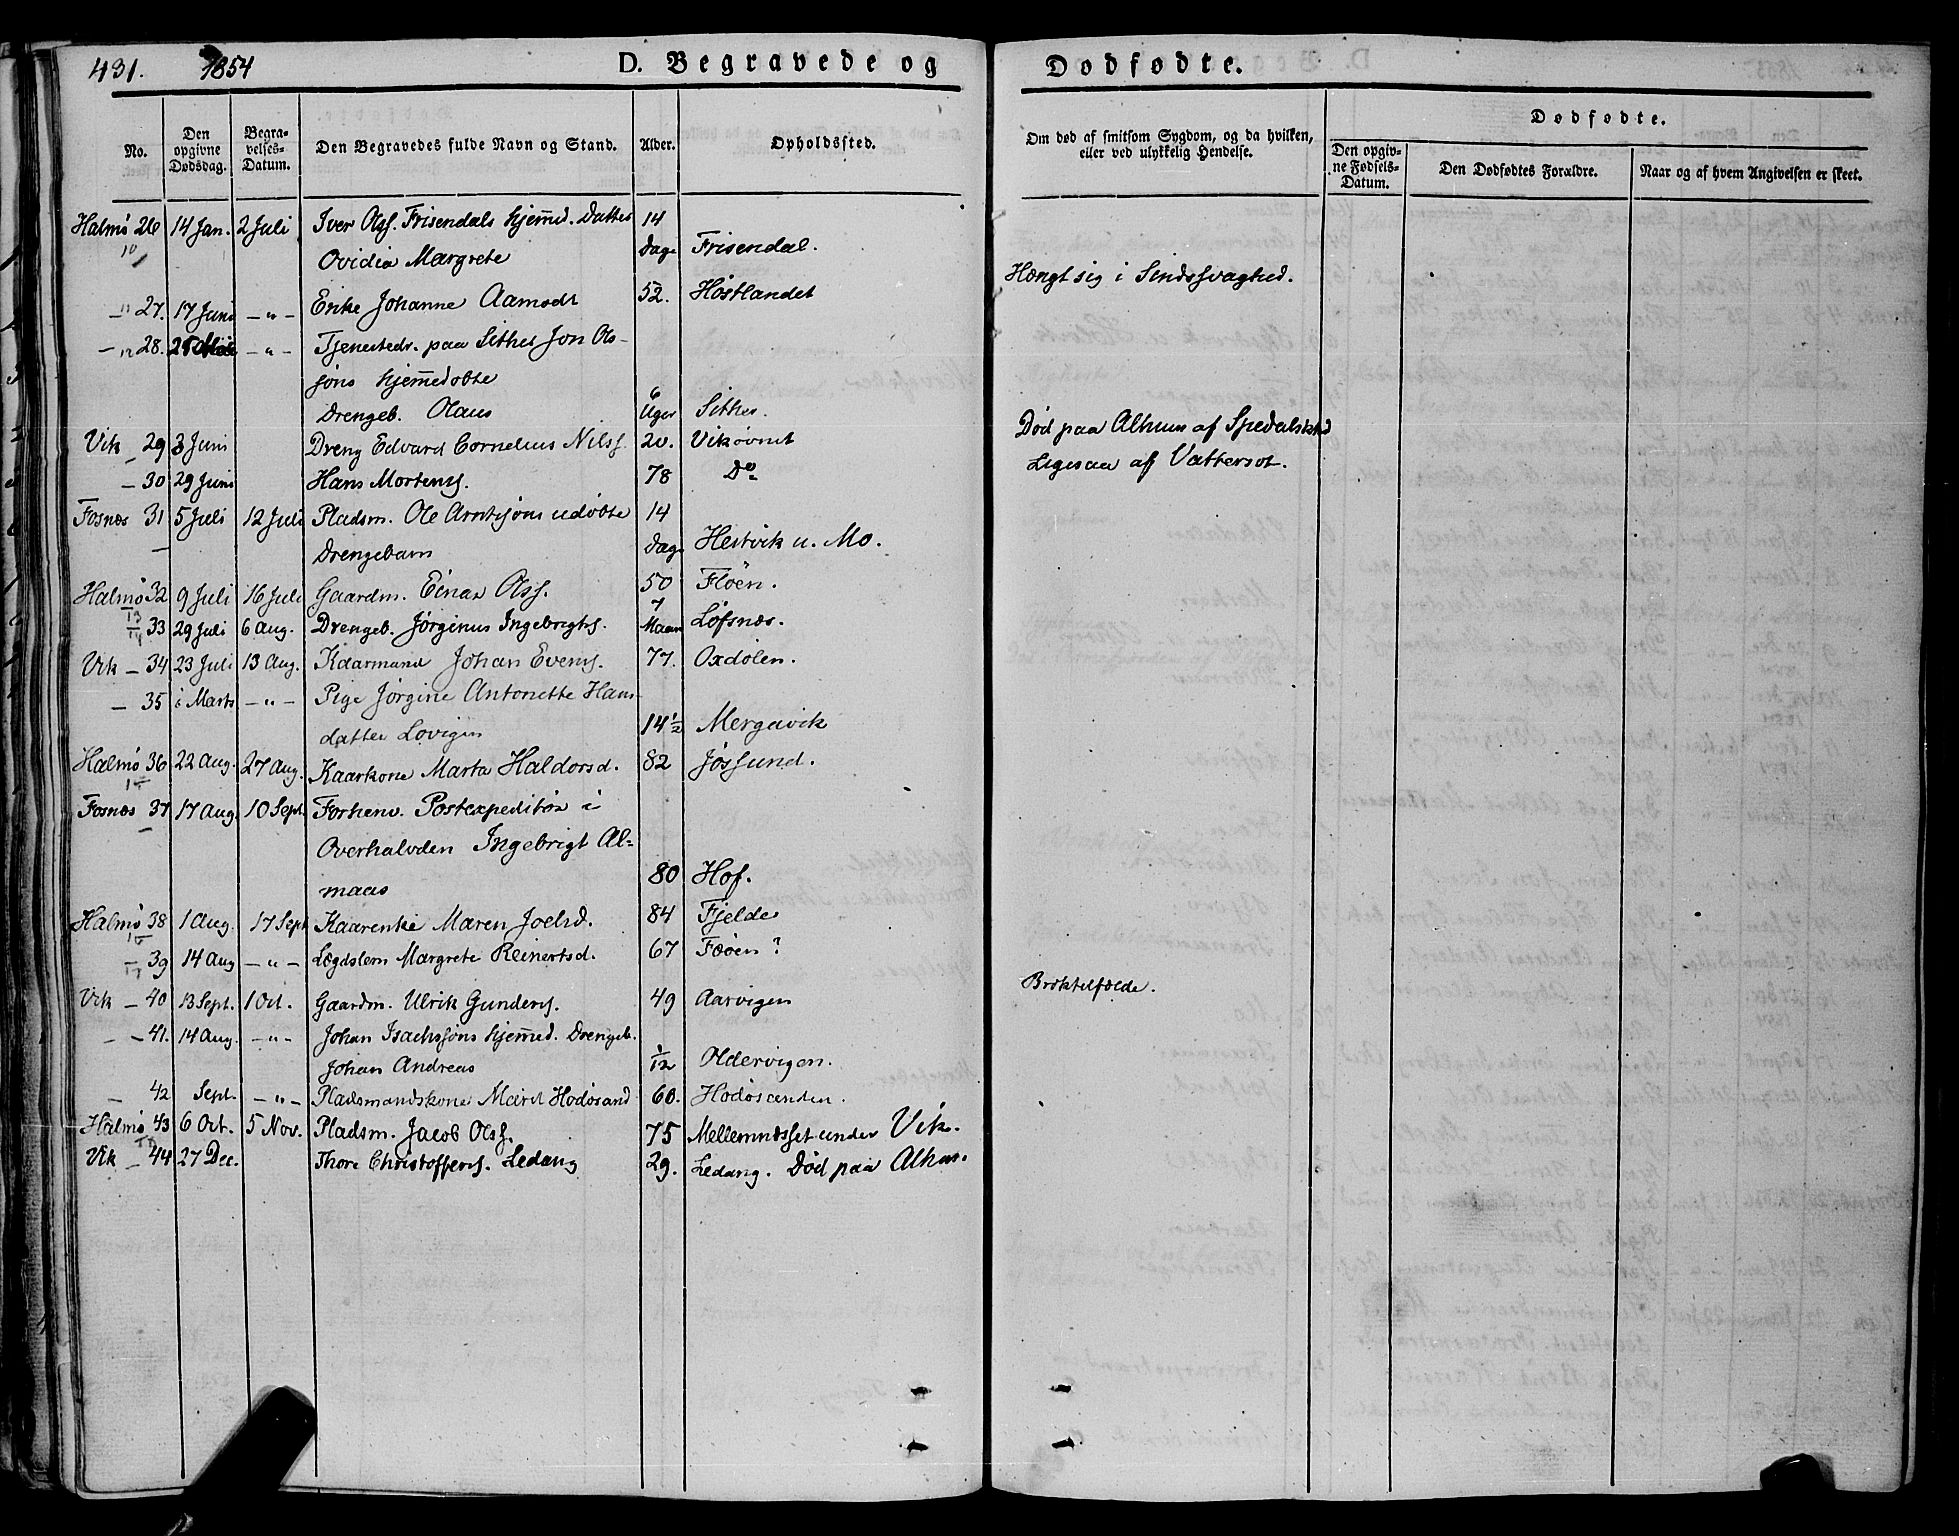 431. 1854 D. Begravede og Dødfødte.
No. Den opgivne Dødsdag. Begravelses-Datum. Den Begravedes fulde Navn og Stand. Alder. Opholdssted. Om død af smitsom Sygdom, og da hvilken, eller ved ulykkelig Hendelse. Dødfødte.
Den opgivne Fødsels-Datum. Den Dødfødtes Forældre. Naar og af hvem Angivelsen er skeet.
Halmø 26 14 Jan. 2 Juli Iver Olss. Frisendals hjemmed. Datter 14
10 Ovidia Margrete Dage Frisendal.
— 11 27. 17 Juni — „ — Enke Johanne Aamodt 52. Høstlandet Hængt sig i Sindssvaghed.
— 12 28. — „ — Tjenestedr. paa Sithes Jon Ols-
søns hjemmedøbte
Drengeb. Olaus 6 Uger Sithes.
Vik — 29 3 Juni Dreng Edvard Cornelius Nilss. 20. Vikøvnet Død paa Alhuus af Spedalskhd
— 30 29 Juni Hans Mortenss. 78 Do Ligesaa af Vattersot.
Fosnæs 31 5 Juli 12 Juli Pladsm. Ole Arntsøns udøbte 14
— Drengebarn Dage Hestvik u. Mo.
Halmø 32 9 Juli 16 Juli Gaardm. Einar Olss. 50 Fløen.
13
14 33 29 Juli 6 Aug. Drengeb. Jørginus Ingebrigts. 7 Maan Løfsnæs.
Vik — 34 23 Juli 13 Aug. Kaarmand Johan Evens. 77. Oxdølen.
— 35 i Marts — „ — Pige Jørgine Antonette Hans
datter Lovigen 14½ Mergavik
Halmø 36 22 Aug. 27 Aug. Kaarkone Marta Haldorsd. 82 Jøssund.
15
Fosnæs 37 17 Aug. 10 Sept. Forhenv. Postexpeditør i
— Overhalvden Ingebrigt Al-
maas 80 Hof.
Halmø 38 1 Aug. 17 Sept Kaarenke Maren Joelsd. 84 Fjelde
16
17 39 14 Aug — „ — Lægdslem Margrete Reinertsd. 67 Fæøen ?
Vik — 40 13 Sept. 1 Oct. Gaardm. Ulrik Gunders. 49 Aarvigen Broktilfælde.
— 41. 14 Aug. — „ — Johan Isachssøns hjemmed. Drengeb.
Johan Andreas 1/12 Oldervigen.
— 42 Sept. — „ — Pladsmandskone Marit Hodøsand 60. Hodøsanden.
Halmø 43 6 Oct. 5 Nov. Pladsm. Jacob Olss. 75 Mellemnæsset under Vik.
18
Vik — 44 27 Dec. Thore Christoffers. Ledang 29. Ledang. Død paa Alhus.